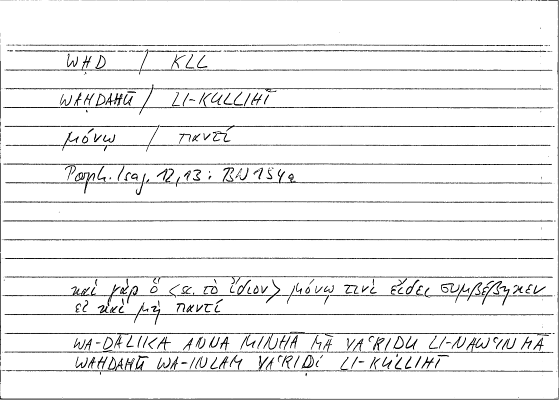 WḤD / KLL
WAḤDAHŪ / LI-KULLIHĪ
μόνῳ / παντί
Porph. Isag. 12,13 : BN 154a
καὶ γὰρ ὃ <sc. τὸ ἴδιον> μόνῳ τινὶ εἴδει συμβέβηκεν
εἰ καὶ μὴ παντί
WA-ḎĀLIKA ANNA MINHĀ MĀ YAʿRIḌU LI-NAWʿIN MĀ
WAḤDAHŪ WA-IN LAM YAʿRIḌ LI-KULLIHĪ